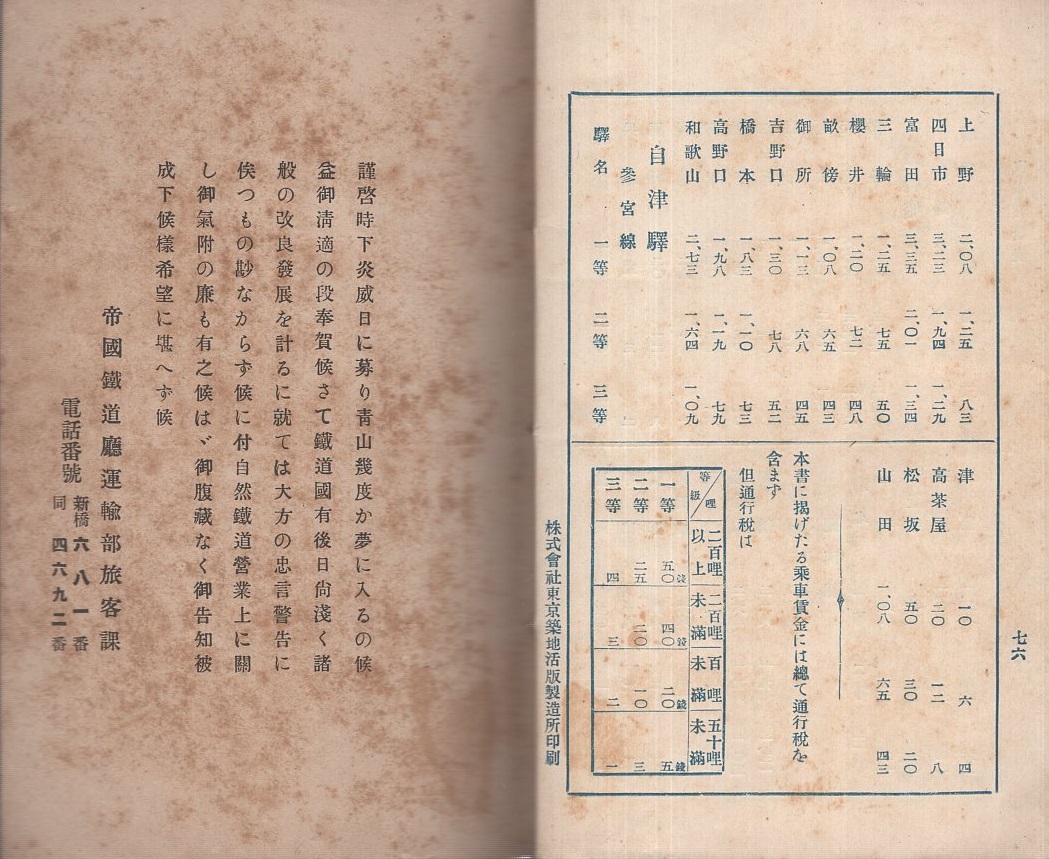 七六
上野 二、〇八 一、二五 八三
四日市 三、二三 一、九四 一、二九
富田 三、三五 二、〇一 一、三四
三輪 一、二五 七五 五〇
櫻井 一、二〇 七二 四八
畝傍 一、〇八 六五 四三
御所 一、一三 六八 四五
吉野口 一、三〇 七八 五二
橋本 一、八三 一、一〇 七三
高野口 一、九八 一、一九 七九
和歌山 二、七三 一、六四 一、〇九
自津驛
參宮線
驛名 一等 二等 三等
津 一〇 六 四
高茶屋 二〇 一二 八
松坂 五〇 三〇 二〇
山田 一、〇八 六五 四三
本書に掲げたる乘車賃金には總て通行税を
含まず
但通行税は
等級/哩 二百哩以上 二百哩未滿 百哩未滿 五十哩未滿
一等 五〇錢 四〇錢 二〇錢 五錢
二等 二五 二〇 一〇 三
三等 四 三 二 一
株式會社東京築地活版製造所印刷
謹啓時下炎威日に募り靑山幾度か夢に入るの候
益御淸適の段奉賀候さて鐵道國有後日尙淺く諸
般の改良發展を計るに就ては大方の忠言警告に
俟つもの尠なからず候に付自然鐵道營業上に關
し御氣附の廉も有之候はゞ御腹藏なく御告知被
成下候樣希望に堪へず候
帝國鐵道廳運輸部旅客課
電話番號 新橋六八一番
同四六九二番